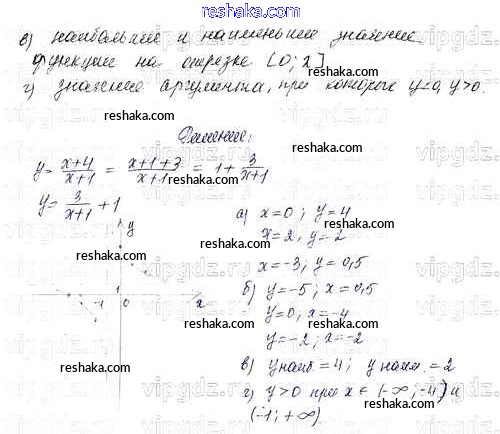 resheba.com
в) наибольшее и наименьшее значение
функции на отрезке [0; 2]
reshaka.com
г) значение аргумента, при которые y<0, y>0.
reshaka.com
Решение:
y = x+4/x+1 = x+1+3/x+1 = 1 + 3/x+1
reshaka.com
y = 3/x+1 + 1
а) x=0; y=4
reshaka.com
x=2, y=2
y
reshaka.com
x=-3, y=0,5
reshaka.com
б) y=-5; x=0,5
-1 0 x
y=0, x=-4
reshaka.com
y=-2; x=-2
reshaka.com
в) y наиб.=4; y наим.=2
reshaka.com
г) y>0 при x∈(-∞;-4) и
reshaka.com
(-1;+∞)
vipgdz.ru